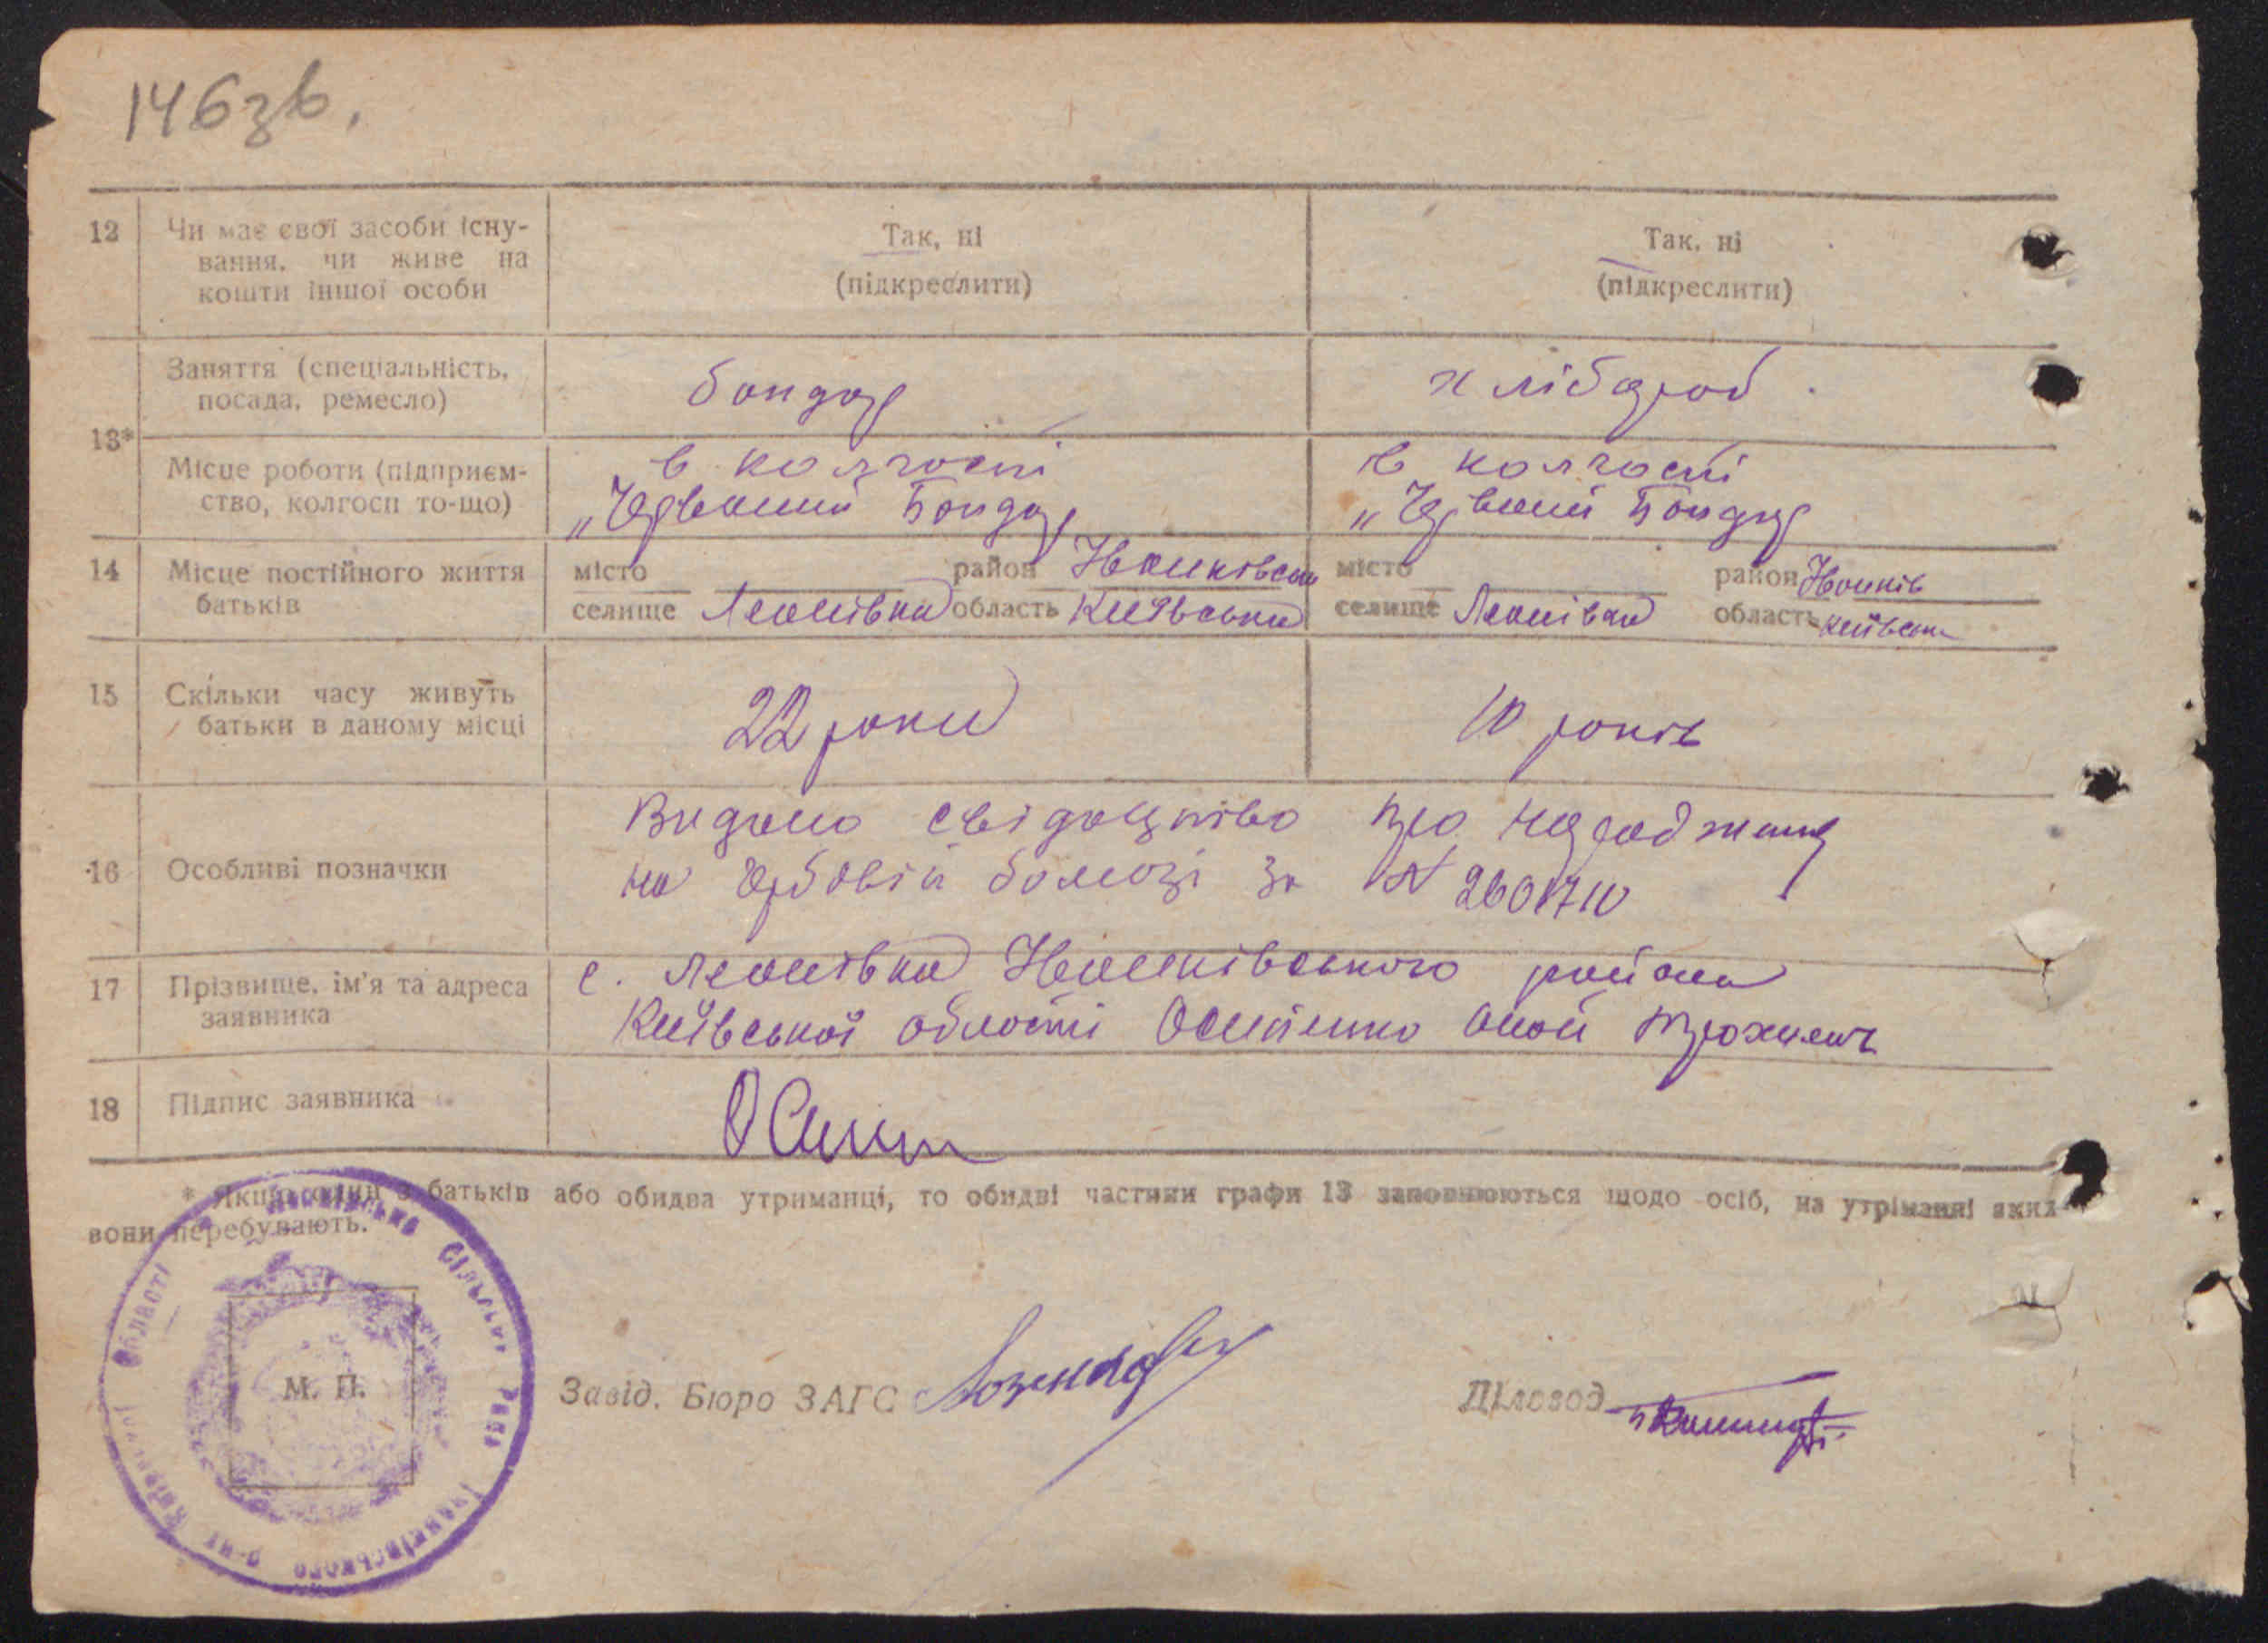 146зв.
12 Чи має свої засоби існу-
вання, чи живе на
кошти іншої особи
Так, ні
(підкреслити)
Так, ні
(підкреслити)
13*
Заняття (спеціальність,
посада, ремесло)
бондар
хлібороб.
Місце роботи (підприєм-
ство, колгосп то-що)
в колгоспі
„Червоний Бондар
в колгоспі
„Червоний Бондар
14 Місце постійного життя
батьків
місто район Іванківськ
селище Леонівка область Київська
місто район Іванків
селище Леонівка область Київськ
15 Скільки часу живуть
батьки в даному місці
22 роки
10 років
16 Особливі позначки
Видано свідоцтво про народження
на гербовій бомозі за № 2601710
17 Прізвище, ім'я та адреса
заявника
с. Леонівка Іванківського района
Київської області Осипенко
18 Підпис заявника
* Якщо один з батьків або обидва утриманці, то обидві частини графи 13 заповнюються щодо осіб, на утріманні яких
вони перебувають.
Сільська Рада Іванківського р-ну Київської Області
М. П.
Завід. Бюро ЗАГС
Діловод